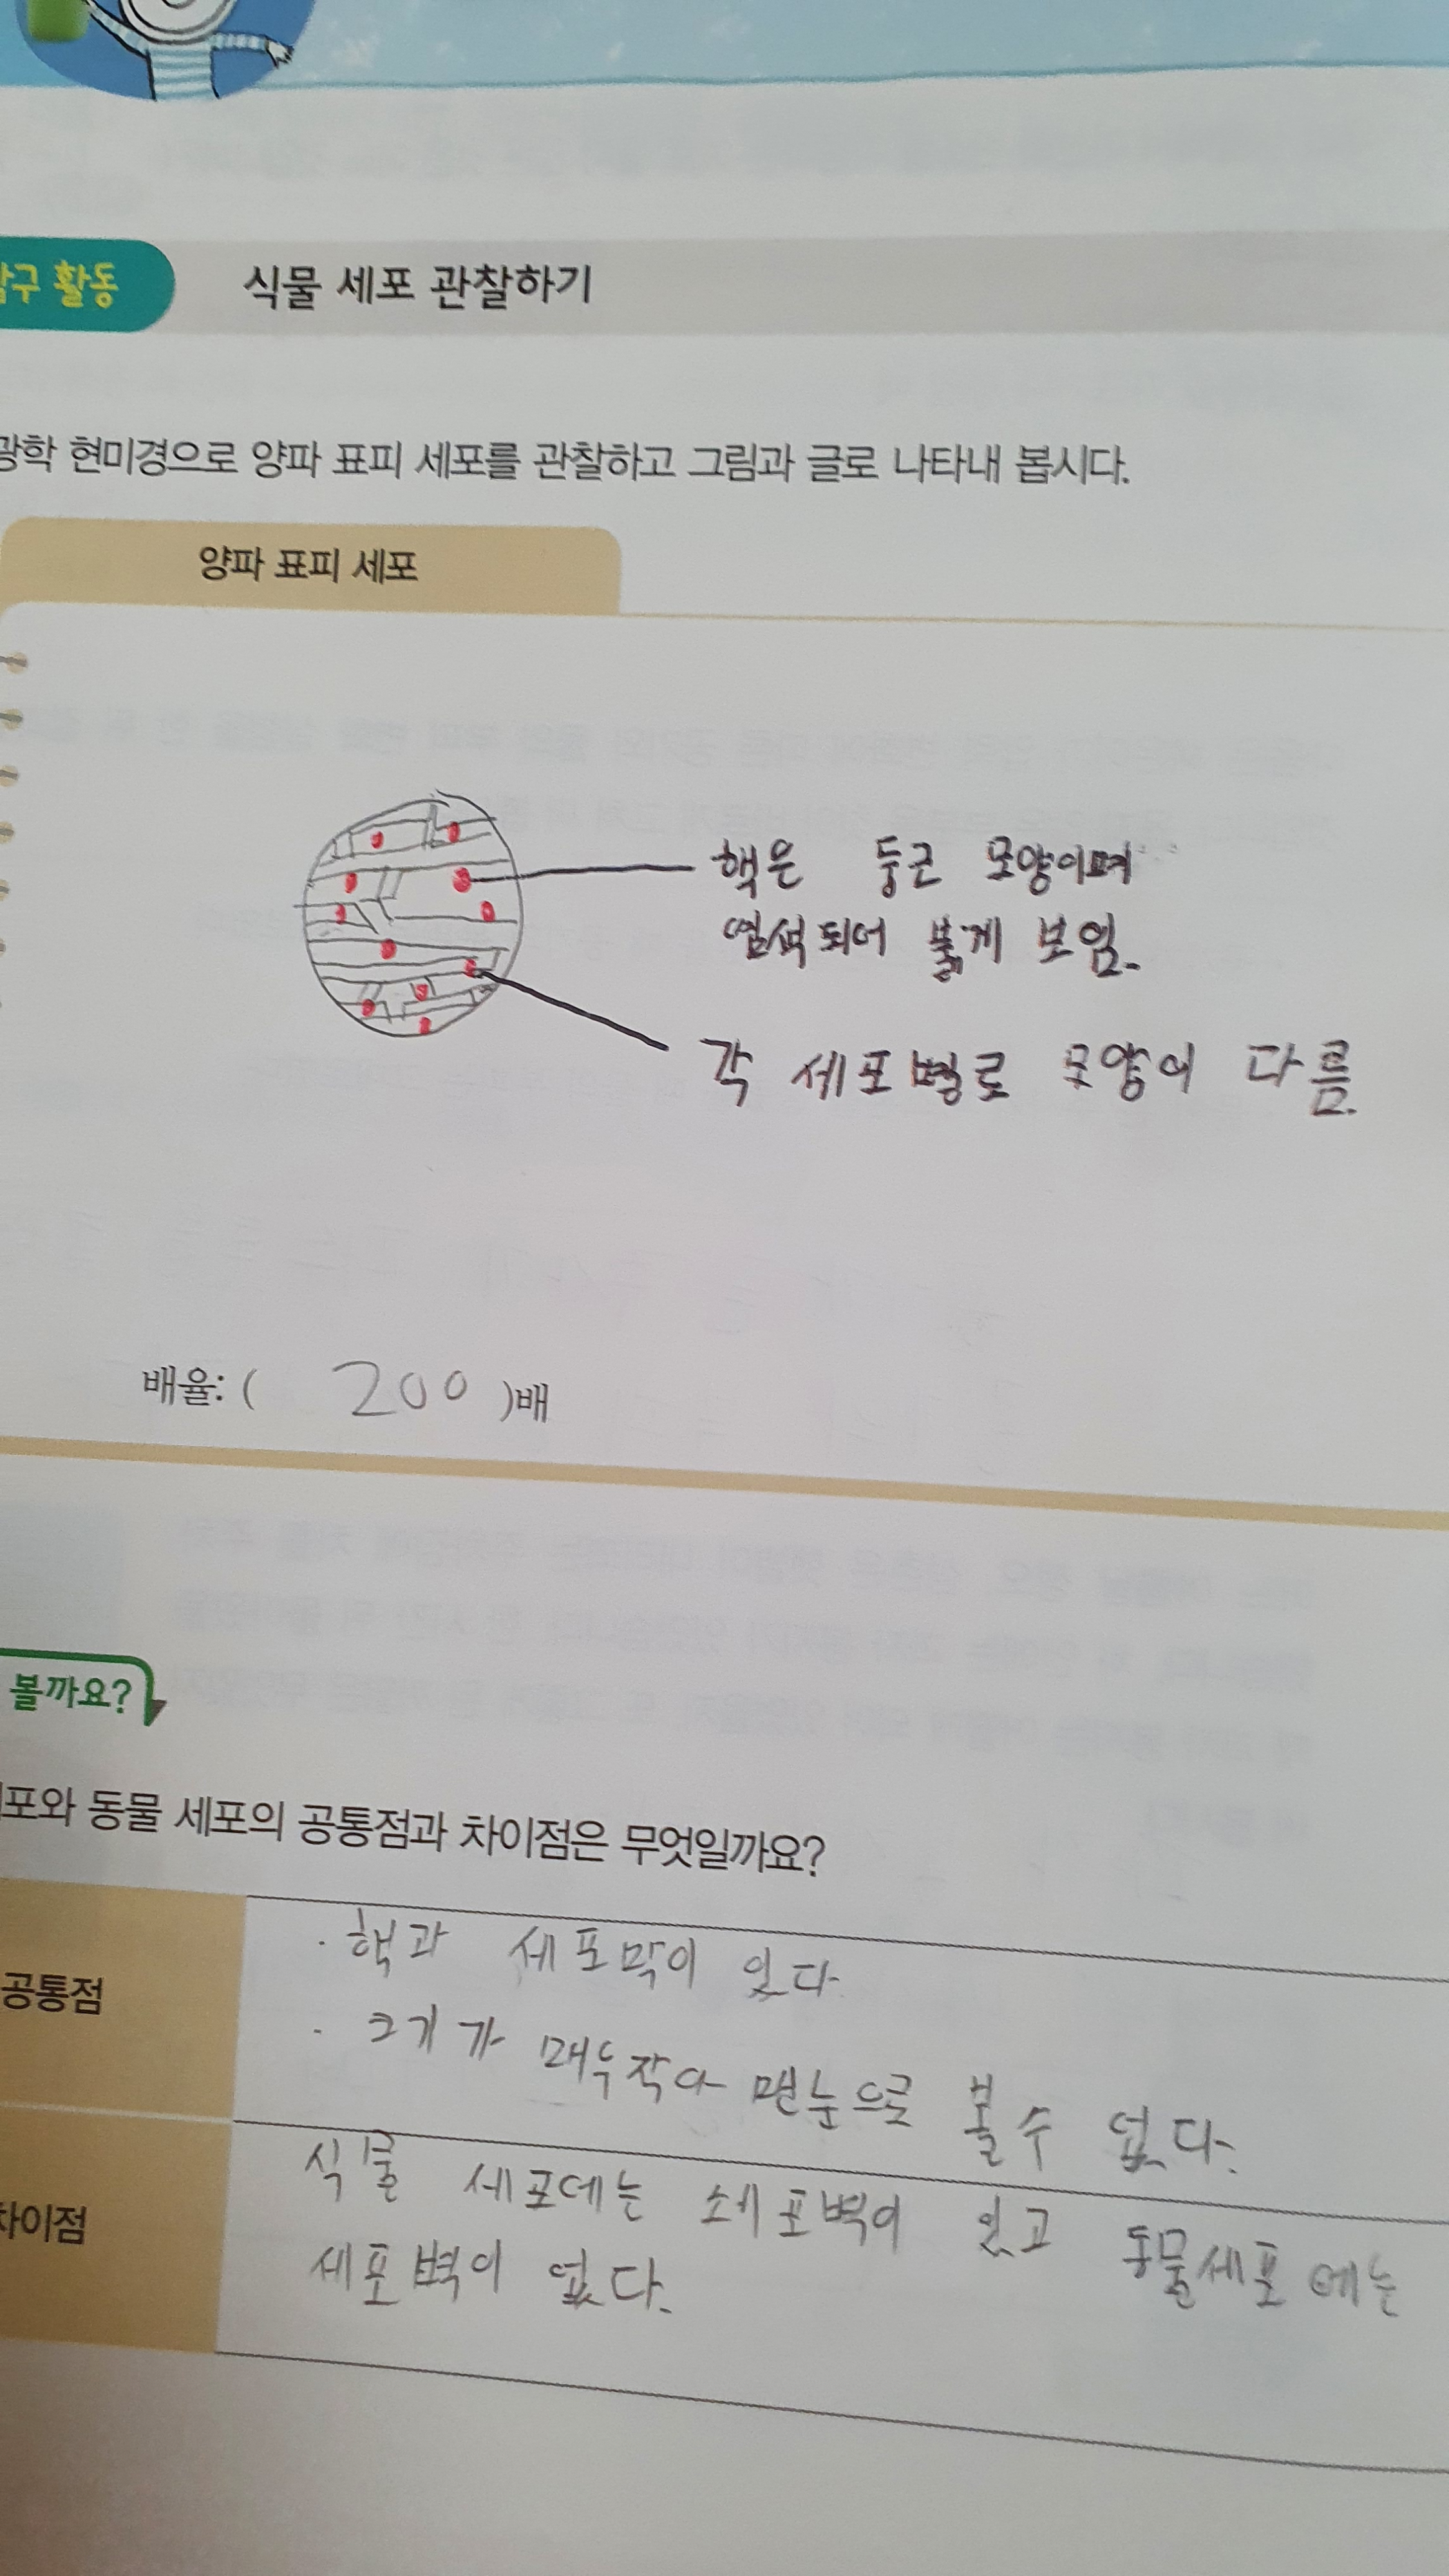 탐구 활동 식물 세포 관찰하기
광학 현미경으로 양파 표피 세포를 관찰하고 그림과 글로 나타내 봅시다.
양파 표피 세포
핵은 둥근 모양이며
염색되어 붉게 보임.
각 세포별로 모양이 다름.
배율: ( 200 )배
볼까요?
세포와 동물 세포의 공통점과 차이점은 무엇일까요?
공통점
· 핵과 세포막이 있다
· 크기가 매우작아 맨눈으로 볼 수 없다.
차이점
식물 세포데는 세포벽이 있고 동물세포에는
세포벽이 없다.